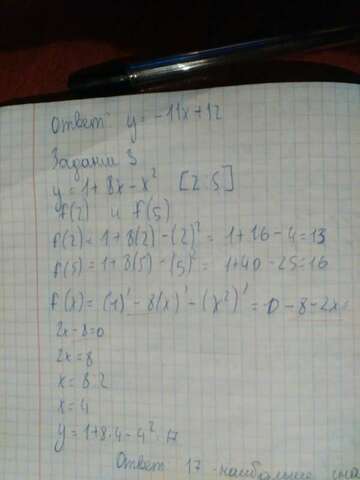 Ответ: y = -11x+12
Задание 3
y = 1 + 8x - x² [2;5]
f(2) и f(5)
f(2) = 1+8(2) - (2)² = 1+16-4=13
f(5) = 1+8(5) - (5)² = 1+40-25=16
f'(x) = (1)' - 8(x)' - (x²)' = 0 - 8 - 2x =
2x-8=0
2x=8
x = 8:2
x = 4
y = 1+8·4-4² = 17
Ответ 17 - наибольше зна